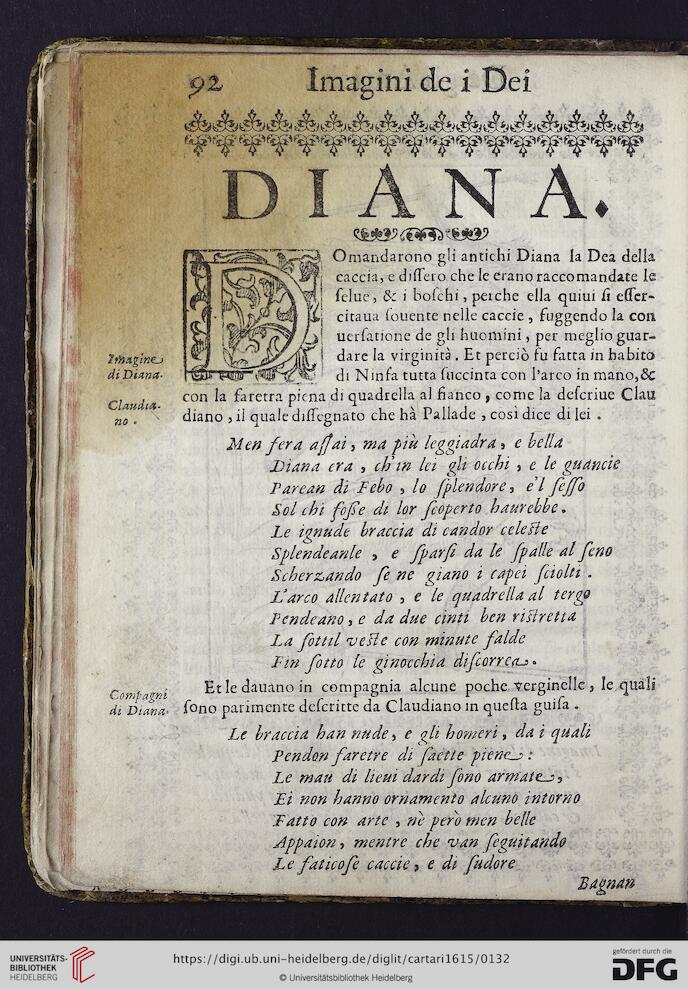 92 Imagini de i Dei
DIANA.
DOmandarono gli antichi Diana la Dea della
caccia, e diſſero che le erano raccomandate le
ſelue, & i boſchi, perche ella quiui ſi eſſer-
citaua ſouente nelle caccie, fuggendo la con
uerſatione de gli huomini, per meglio guar-
dare la virginità. Et perciò fu fatta in habito
di Ninfa tutta ſuccinta con l'arco in mano, &
con la faretra piena di quadrella al fianco, come la deſcriue Clau
diano, il quale diſſegnato che hà Pallade, così dice di lei.
Imagine
di Diana.
Claudia-
no.
Men fera aſſai, ma più leggiadra, e bella
Diana era, ch'in lei gli occhi, e le guancie
Parean di Febo, lo ſplendore, e'l ſeſſo
Sol chi foſſe di lor ſcoperto haurebbe.
Le ignude braccia di candor celeſte
Splendeanle, e ſparſi da le ſpalle al ſeno
Scherzando ſe ne giano i capei ſciolti.
L'arco allentato, e le quadrella al tergo
Pendeano, e da due cinti ben riſtretta
La ſottil veſte con minute falde
Fin ſotto le ginocchia diſcorrea.
Et le dauano in compagnia alcune poche verginelle, le quali
ſono parimente deſcritte da Claudiano in queſta guiſa.
Compagni
di Diana.
Le braccia han nude, e gli homeri, da i quali
Pendon faretre di ſaette piene:
Le mau di lieui dardi ſono armate,
Ei non hanno ornamento alcuno intorno
Fatto con arte, nè però men belle
Appaion, mentre che van ſeguitando
Le faticoſe caccie, e di ſudore
Bagnan
UNIVERSITÄTS-
BIBLIOTHEK
HEIDELBERG
https://digi.ub.uni-heidelberg.de/diglit/cartari1615/0132
© Universitätsbibliothek Heidelberg
gefördert durch die
DFG